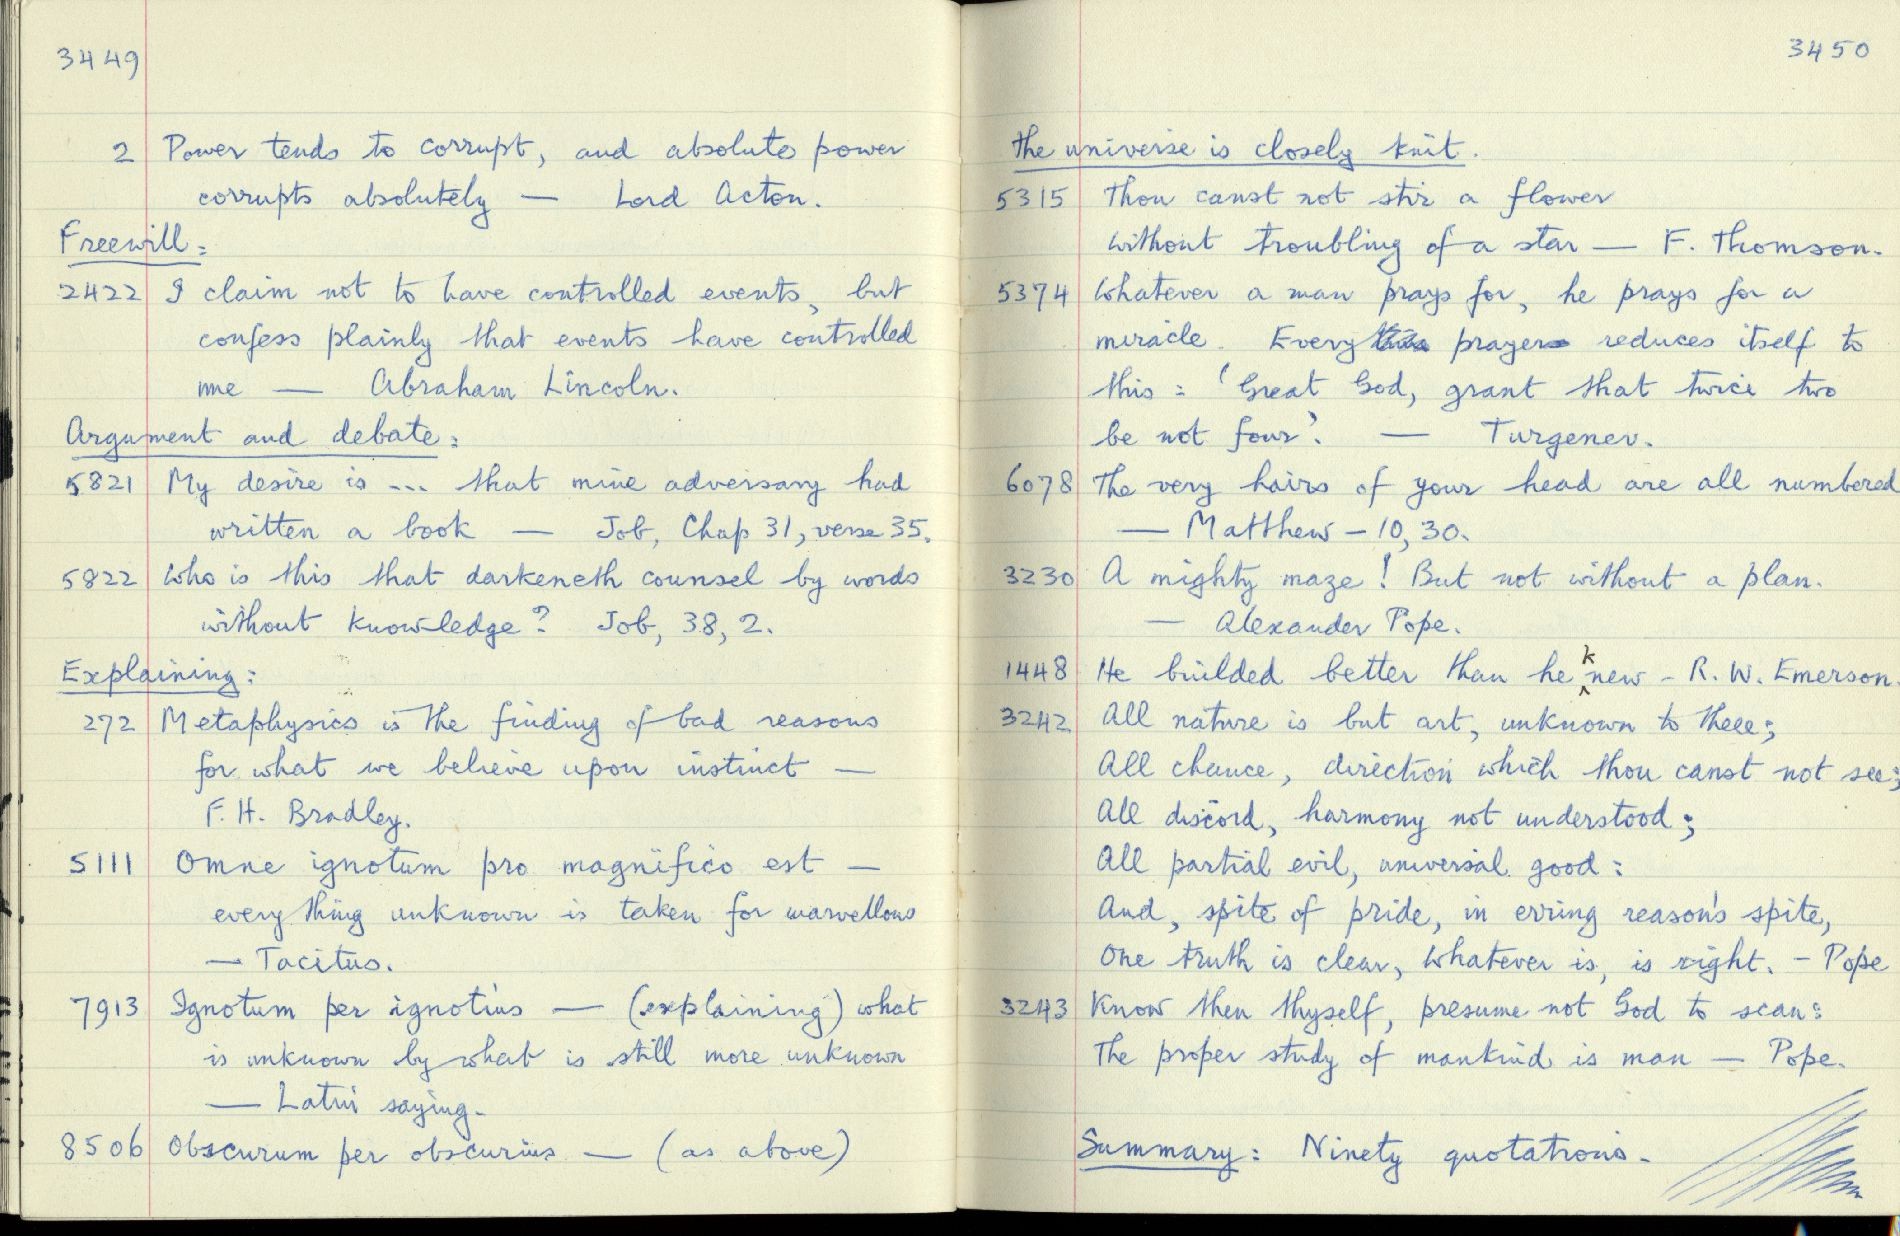 3449
2 Power tends to corrupt, and absolute power
corrupts absolutely — Lord Acton.
Freewill:
2422 I claim not to have controlled events, but
confess plainly that events have controlled
me — Abraham Lincoln.
Argument and debate:
5821 My desire is ... that mine adversary had
written a book — Job, Chap 31, verse 35.
5822 Who is this that darkeneth counsel by words
without knowledge? Job, 38, 2.
Explaining:
272 Metaphysics is the finding of bad reasons
for what we believe upon instinct —
F. H. Bradley.
5111 Omne ignotum pro magnifico est —
everything unknown is taken for marvellous
— Tacitus.
7913 Ignotum per ignotius — (explaining) what
is unknown by what is still more unknown
— Latin saying.
8506 Obscurum per obscurius — (as above)
3450
The universe is closely knit.
5315 Thou canst not stir a flower
without troubling of a star — F. Thomson.
5374 Whatever a man prays for, he prays for a
miracle. Every prayer reduces itself to
this: 'Great God, grant that twice two
be not four'. — Turgenev.
6078 The very hairs of your head are all numbered
— Matthew — 10, 30.
3230 A mighty maze! But not without a plan.
— Alexander Pope.
1448 He builded better than he knew - R. W. Emerson.
3242 All nature is but art, unknown to thee;
All chance, direction which thou canst not see;
All discord, harmony not understood;
All partial evil, universal good:
And, spite of pride, in erring reason's spite,
One truth is clear, Whatever is, is right. - Pope
3243 Know then thyself, presume not God to scan:
The proper study of mankind is man — Pope.
Summary: Ninety quotations.